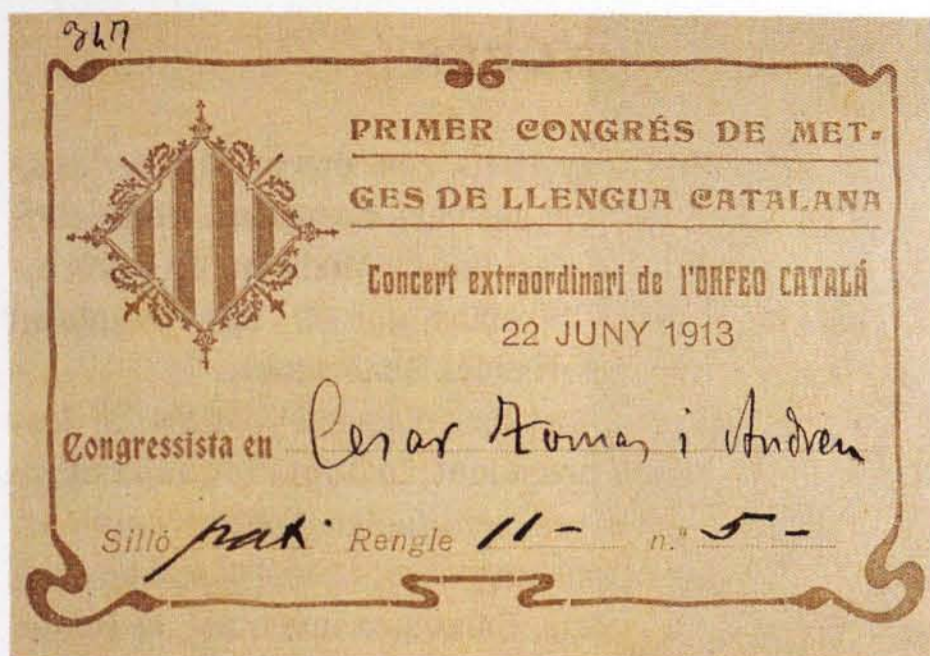 347
PRIMER CONGRÉS DE MET-
GES DE LLENGUA CATALANA
Concert extraordinari de l'ORFEO CATALÁ
22 JUNY 1913
Congressista en Cesar Tomas i Andreu
Silló pati Rengle 11- n.º 5-